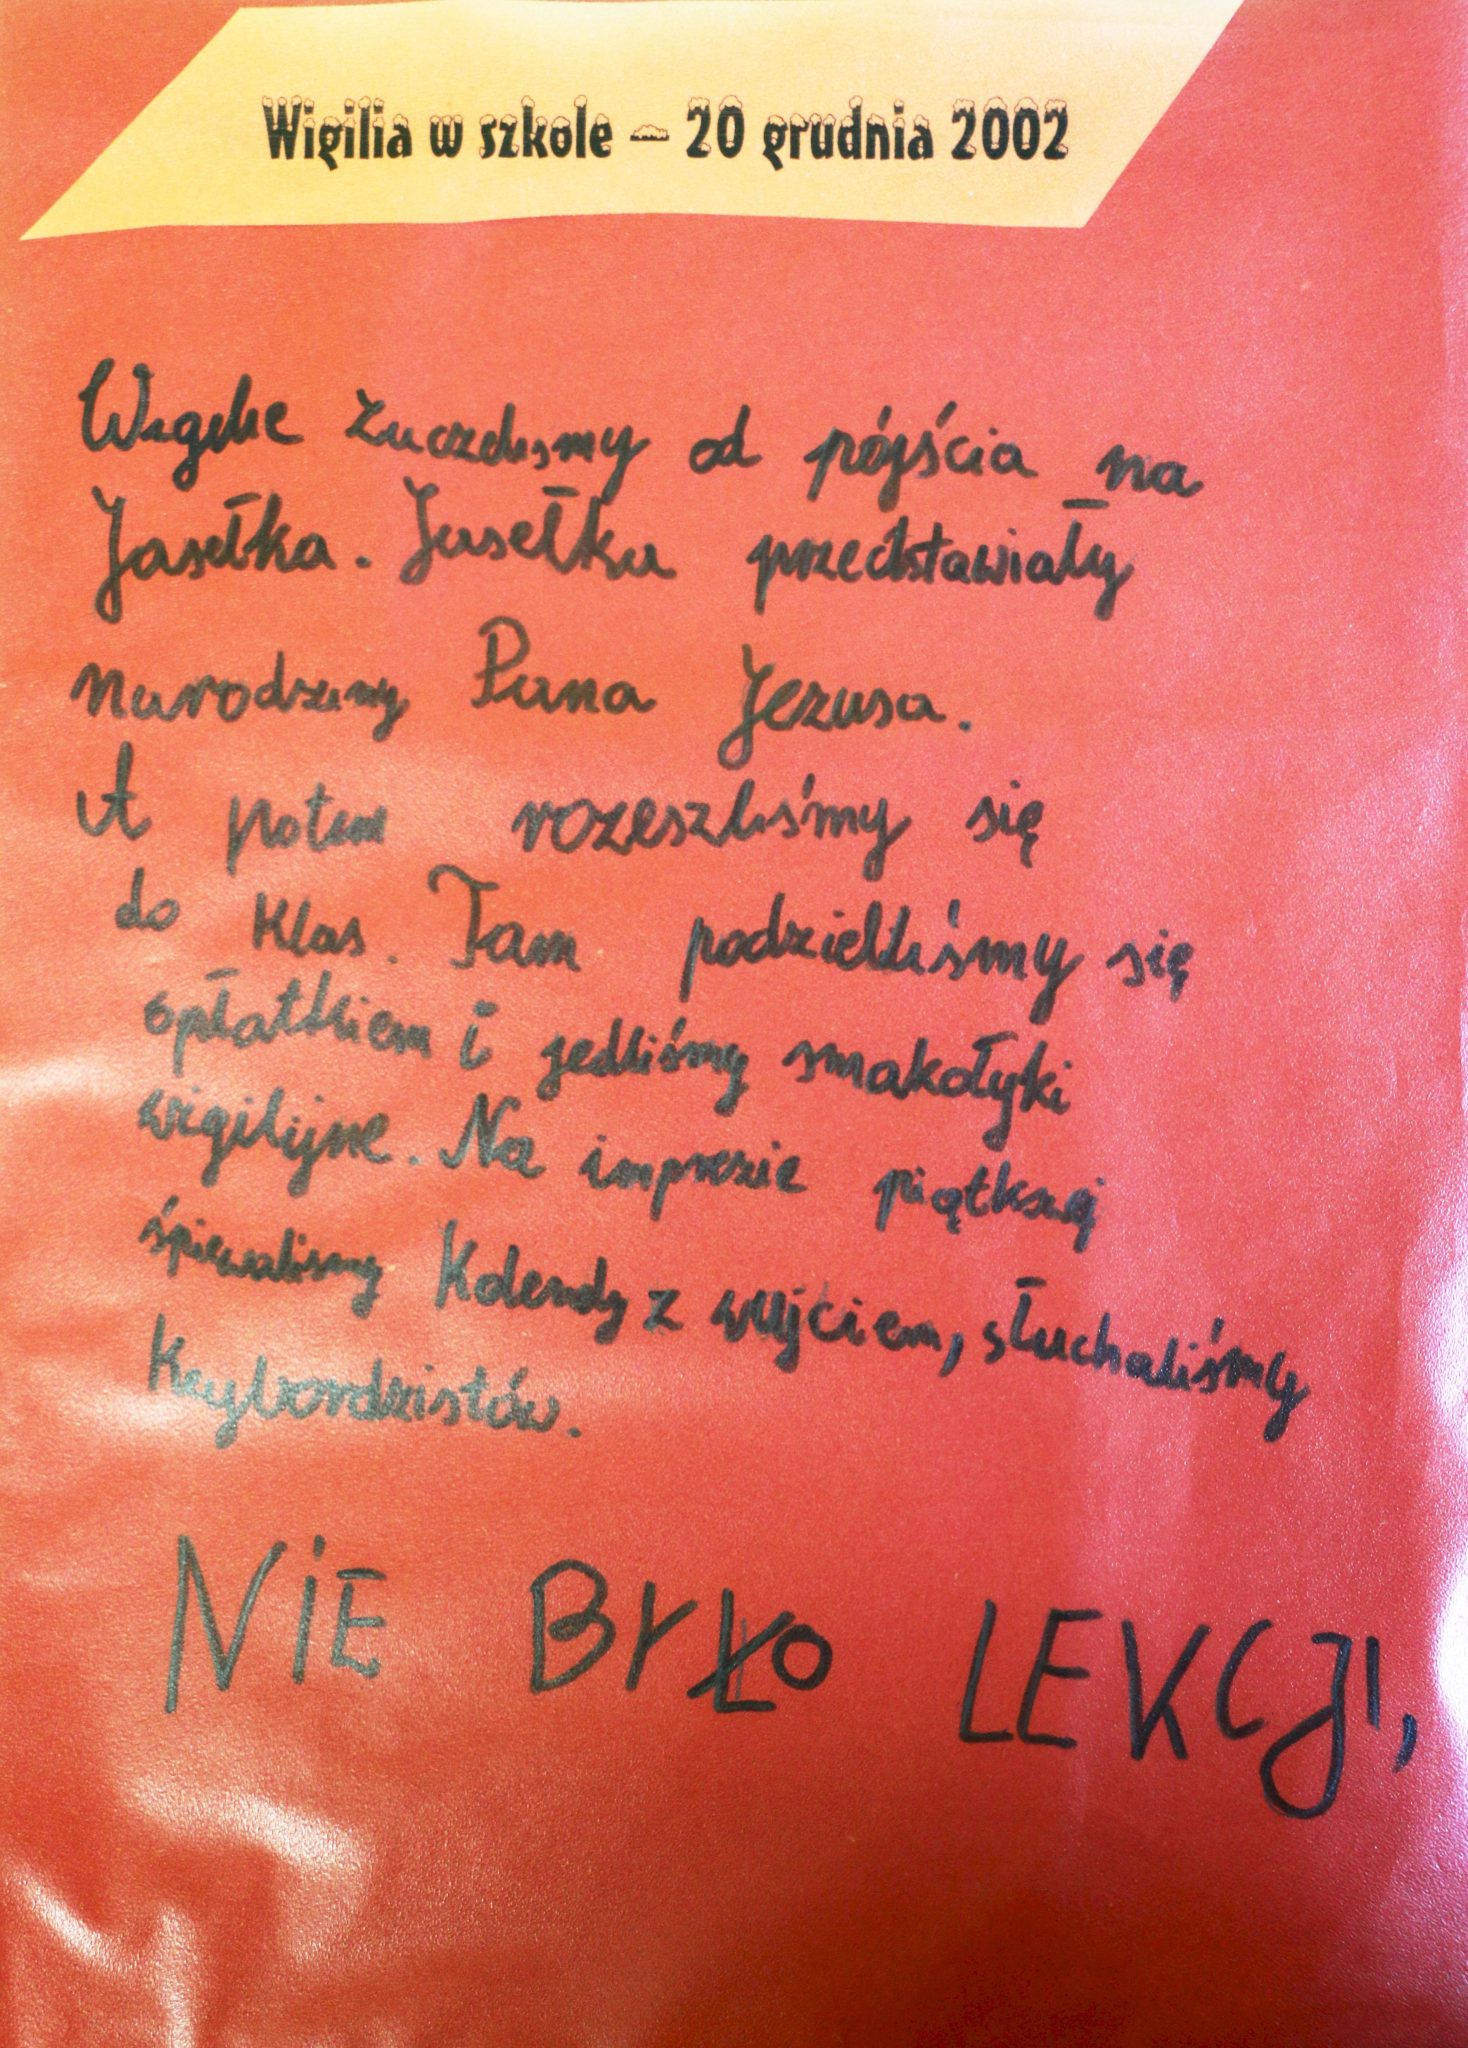 Wigilia w szkole – 20 grudnia 2002
Wigilie zaczeliśmy od pójścia na
Jasełka. Jasełka przedstawiały
narodziny Pana Jezusa.
A potem rozeszliśmy się
do klas. Tam podzieliliśmy się
opłatkiem i jedliśmy smakołyki
wigilijne. Na imprezie piątkowej
śpiewalismy Kolendy z wujciem, słuchaliśmy
Keybordzistów.
NIE BYŁO LEKCJI,